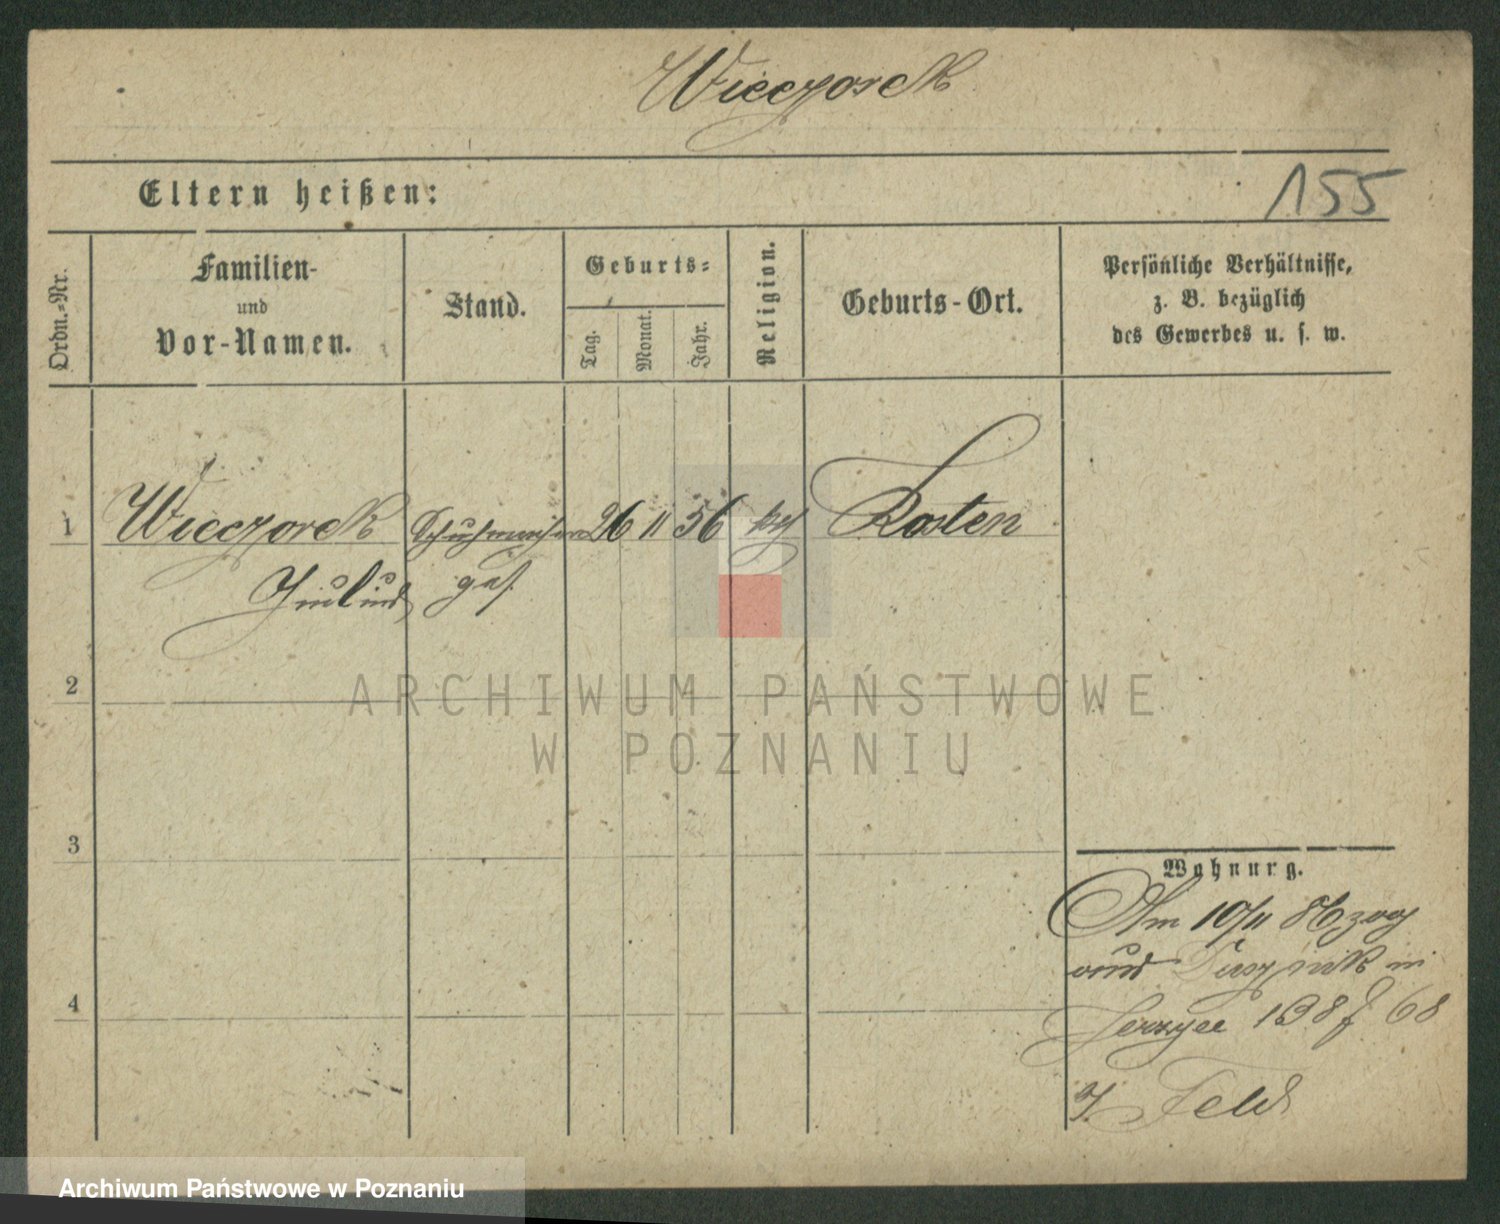 Wieczorek
155
Eltern heißen:
Ordn.-Nr.
Familien-
und
Vor-Namen.
Stand.
Geburts-
Tag.
Monat.
Jahr.
Religion.
Geburts-Ort.
Persönliche Verhältnisse,
z. B. bezüglich
des Gewerbes u. s. w.
1 Wieczorek Schuhmacher 26 11 56 kath Kosten
ges.
2
3
4
Wohnung.
Am 10/11
und in
Jerzyce 138 f 68
Feld
ARCHIWUM PAŃSTWOWE
W POZNANIU
Archiwum Państwowe w Poznaniu